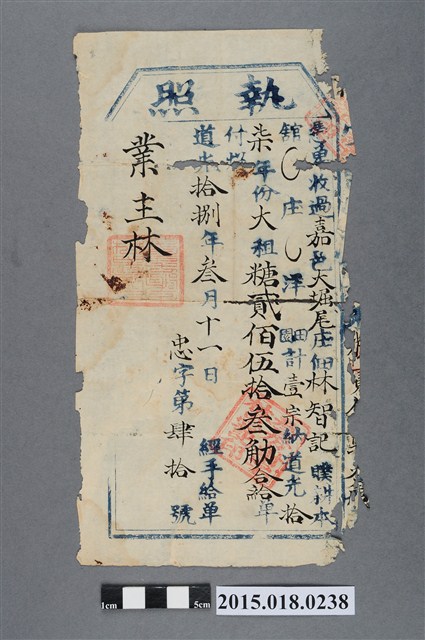 執照
業重收過嘉邑大堀尾庄佃林智記贌耕本
館庄洋田園計壹宗納道光拾
柒年份大租糖貳佰伍拾叁觔合給單
付照
道光拾捌年叁月十一日 經手給單
忠字第肆拾號
業主林
1cm 5cm
2015.018.0238